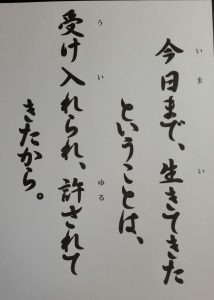 今日まで、生きてきた
ということは、
受け入れられ、許されて
きたから。